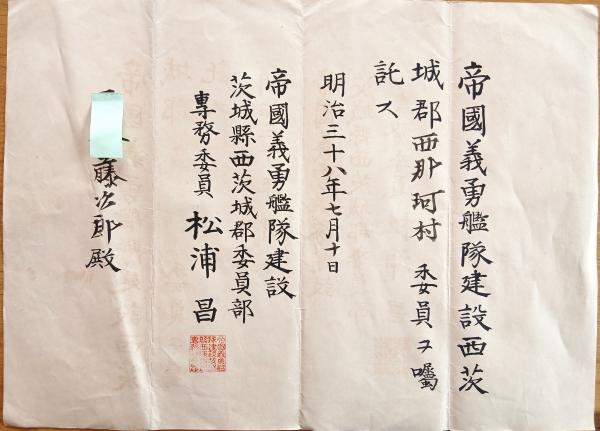 帝國義勇艦隊建設西茨
城郡西那珂村 委員ヲ囑
託ス
明治三十八年七月十日
帝國義勇艦隊建設
茨城縣西茨城郡委員部
專務委員 松浦 昌
藤次郎殿